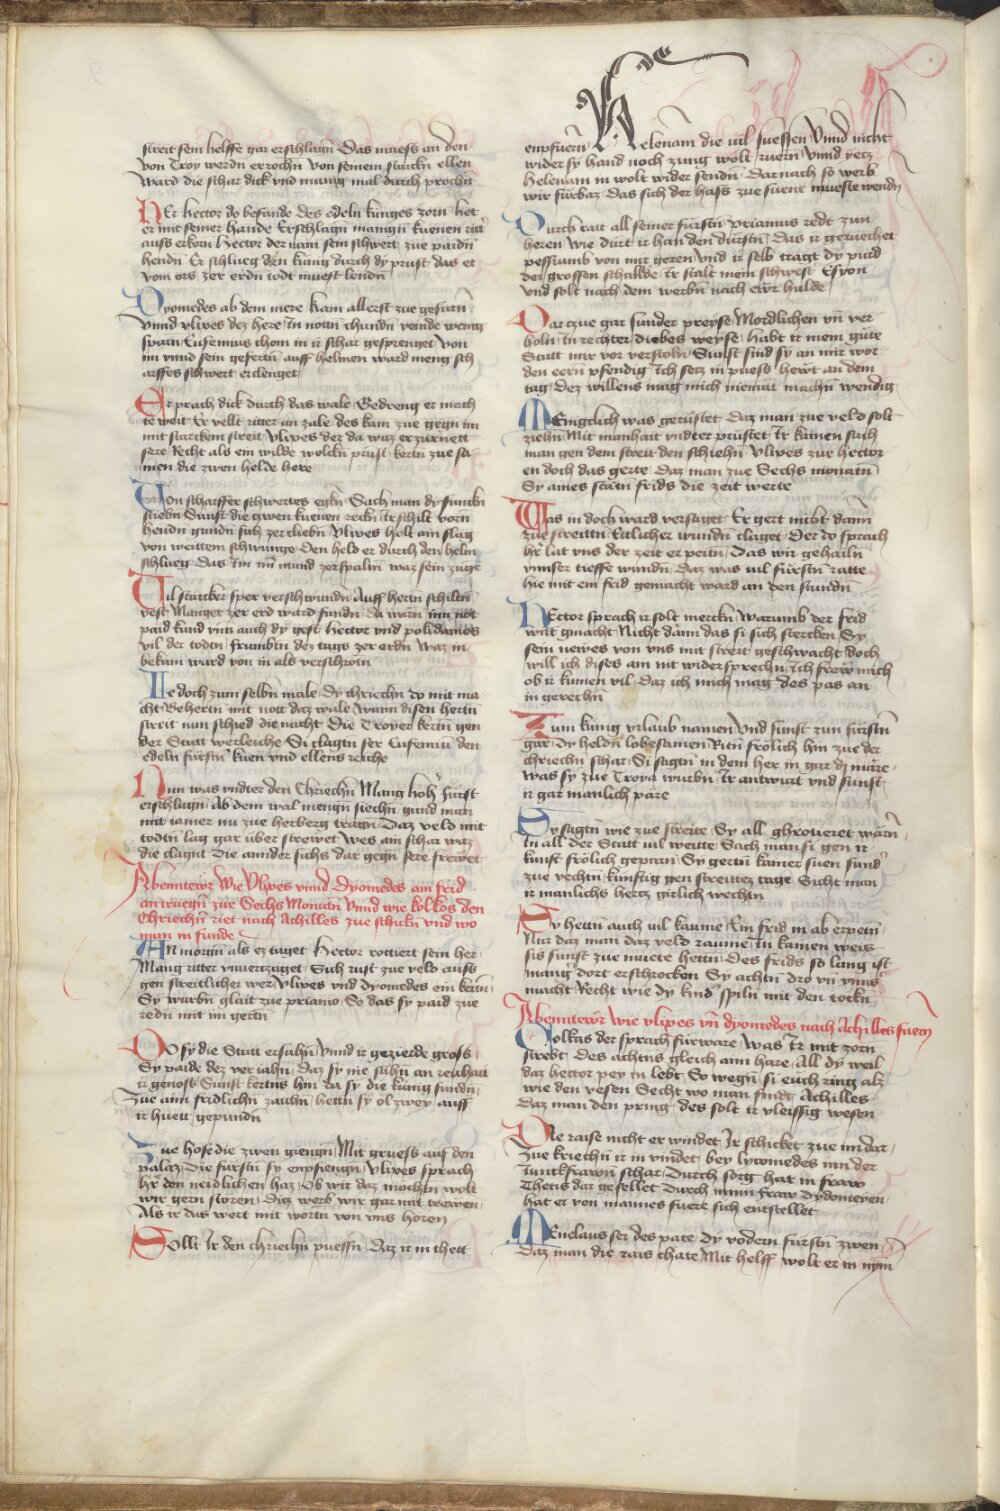 streit sein helffe gar erschlagñ Das muess an den
von Troy werdn errochñ von seinem starckñ ellen
Ward die schar dick vnd manig mal durch prochñ
HEr hector do befande des edeln kunges zorn het
er mit seiner hande Erschlagñ mangñ kuenen ritt̃
aws erkorn hector der nam sein schwert zue paidñ
hendñ Er schlueg den kung durch dy prust das er
vom ors zer erdñ todt muest lendñ
Dyomedes ab dem mere kam allerst zue gefurñ
vnnd vlixes dez here
sparñ Eufemius chom in ir schar gesprenget von
im vnnd sein gefertñ auff helmen ward meng sch
arffes schwert erclenget
Er prach dick durch das wale Gedreng er mach
te weit Er vellt ritter an zale des kam zue gegn im
mit starckem streit Vlixes der da waz erzurnett
sere Recht als ein wilde wolckñ prust kertñ zue sa
men die zwen helde here
Von scharffer schwertes egkñ Sach man dy funckñ
stiebñ Sunst die zwen kuenen reckñ Ir schilt vorñ
hendñ gundñ sich zercliebñ Vlixes holt am slag
von weittem schwunge den held er durch den helm
schlueg das Im im mund zerspaltñ waz sein zunge
Vil starcker sper verschwundñ Auff hertñ schiltñ
vest Manger zer erd ward fundñ da warñ inn not
paid kund vnd auch dy gest hector vnd polidamas
vil der todtñ frumbtñ dez tags zer erdñ Waz in
bekam ward von in als verschrotñ
Ie doch zum selbñ male dy chriechñ do mit ma
cht Behertñ mit nott daz wale Wann disen hertñ
streit nun schied die nacht Die Troyer kertñ gen
der Statt werleiche Si clagtñ ser Eufemiu den
edeln furstñ kuen vnd ellens reiche
Nun was vndter den Chriechñ Mang hoh̃ furst
erschlagñ Ab dem wal mengñ siechñ gund man
mit iamer nu zue herberg tragñ Daz veld mit
todtñ lag gar uber strewet Wes am schar waz
die clagnt Die annder sichs dar gegn sere frewet
Abenntewr Wie Vlixes vnnd Dyomedes am frid
an wuegñ zue Sechs Monatñ Vnnd wie kolkos den
Chriechñ riet nach Achilles zue schickñ vnd wo
man in funde
AN morgñ als ez taget hector rottiert sein her
Mang ritter vnuerzaget Sich rust zue veld auss
gen streitlicher wer Vlixes vnd dyomedes ein kertñ
Sy wurbñ glait zue priamo So das sy paid zue
redñ mit im gertñ
DO sy die Statt ersahñ Vnnd ir gezierde gross
Sy paide dez veriahñ Daz sy nie sahñ an reichait
ir genoss Sunst kertñs hin da sy die kunig fundñ
Zue aim fridlichñ zaichñ hettñ sy ol zwey auff
ir huett gepundñ
Zue hofe die zwen giengñ Mit gruess auf den
palaz Die furstñ sy enpfiengñ Vlixes sprach
hr̃ den neidlichen haz Ob wir daz mochtñ wolt
wir gern storen Diz werb wir gar mit trewen
Als ir daz wert mit wortñ von vns horen
Sollt Ir den chriechñ puessñ Daz ir in thett
enpfuern Helenam die vil suessen Vnnd nicht
wider sy hand noch zung wolt ruern Vnnd yetz
Helenam in wolt wider sendñ Darnach so werb
wir furbaz Das sich der hass zue suene mueste wendñ
Durch rait all seiner furstñ Priamus redt zun
heren Wie durt ir han den durstñ Das ir geruechet
pessrumb von mir geren Vnd ir selb tragt dy purd
der grossen schulde Ir stalt mein schwest̃ Esyon
Vnd solt nach dem werbñ nach ewr hulde
Darczue gar sunder preyse Mordlichen vñ ver
holn In rechter diebes weyse habt ir mein guete
Statt mir vor verstolñ Sunst sind sy an mir wor
den eern pfendig Ich setz in puess hewt an dem
tag Dez willens mag mich niemat machñ wendig
MEingclich was gerustet Daz man zue veld solt
ziehñ Mit manhait vndter prustet Ir kamen sach
man gen dem streit den schiehñ Vlixes zue hector
en doch das gerte Daz man zue Sechs monatñ
Sy aines statñ frids die zeit werte
Was in doch ward versaget Er gert nicht dann
zue streittñ Ettlicher wundñ claget Der do sprach
hr̃ lat vns der zeit erpeitñ Das wir gehailñ
vnnser tieffe wundñ Daz was vil furstñ ratte
hie mit ein frid gemacht ward an den stundñ
HEctor sprach ir solt merckñ Warumb der frid
wirt gmacht Nicht dann das si sich stercken Sy
sein newes von vns mit streit geschwacht doch
will ich dises am nit widersprechñ Ich frew mich
ob ir kumen vil Daz ich mich mag des pas an
in gerechñ
Zum kunig vrlaub namen Vnd sunst zun furstñ
gar Dy heldñ lobesamen Rittñ frolich hin zue der
chriechñ schar Si sagtñ in dem her in gar dy mare
Was sy zue Troya wurbñ Ir antwurt vnd sunst
ir gar manlich pare
Sy sagtñ wie zue streite Sy all ghrouieret warñ
In all der Statt vil weitte Sach man si gen ir
kunst frolich geparñ Sy gertñ kainer suen sund̃
zue vechtñ kunftig gen streittez tage Sicht man
ir manlichs hertz girlich wechtñ
Sy hettñ auch vil kaume Ein frid in ab erpetñ
Nur daz man daz veld raume In kamen weis
sis sunst zue miete hettñ Des frids so lang ist
mang̃ dort erschrocken Sy achtñ dro vñ vnns̃
macht Recht wie dy kind spiln mit den tockñ
Abenntewr wie vlixes vñ dyomedes nach Achilles fuern
Colkas der sprach furware Was Ir mit zorn
strebt Des achtens gleich aim hare All dy weil
daz hector pey in lebt So wegñ si euch ring alz
wie den vesen Secht wo man findt Achilles
Daz man den pring des solt ir vleissig wesen
DIe raise nicht erwindet Ir schicket zue im dar
Zue kriechñ ir in vindet bey lycomedes inn der
Junckfrawñ schar Durch sorg hat in fraw
Thetis dar gesellet Durch minn fraw dydomeyen
hat er von mannes fuere sich entstellet
MEnelaus ser des pate Dy vodern furstñ zwen
Daz man die rais thate Mit helff wolt er in nym̃